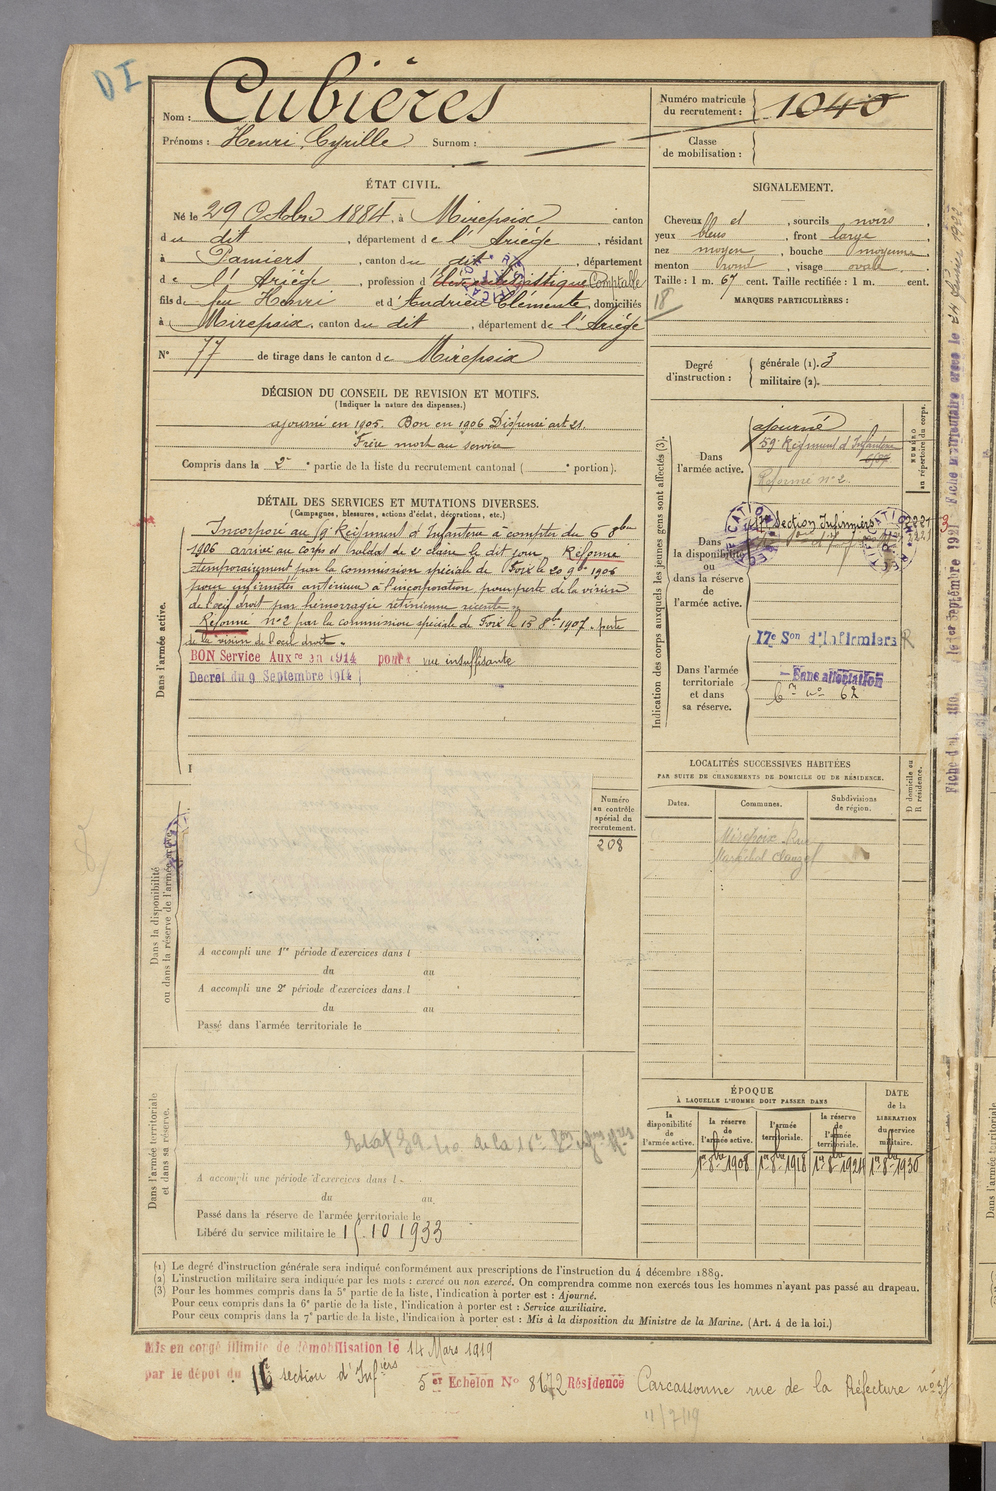 DI
Nom : Cubières
Prénoms : Henri, Cyrille Surnom :
ÉTAT CIVIL.
Né le 29 Octobre 1884, à Mirepoix canton
du dit, département de l'Ariège, résidant
à Pamiers, canton du dit, département
de l'Ariège, profession d'Elève ecclésiastique Comptable
fils de feu Henri et d'Andrieu Clémente, domiciliés
à Mirepoix, canton du dit, département de l'Ariège
N° 77 de tirage dans le canton de Mirepoix
DÉCISION DU CONSEIL DE REVISION ET MOTIFS.
(Indiquer la nature des dispenses.)
ajourné en 1905. Bon en 1906 Dispensé art 21.
Frère mort au service
Compris dans la 2e partie de la liste du recrutement cantonal ( e portion).
DÉTAIL DES SERVICES ET MUTATIONS DIVERSES.
(Campagnes, blessures, actions d'éclat, décorations, etc.)
Dans l'armée active.
Incorporé au 59e Régiment d'Infanterie à compter du 6 8bre
1906 arrivé au corps et soldat de 2e classe le dit jour Réformé
temporairement par la commission spéciale de Foix le 20 9bre 1906
pour infirmités antérieure à l'incorporation pour perte de la vision
de l'oeil droit par hémorragie rétinienne récente
Réformé n°2 par la commission spéciale de Foix le 15 8bre 1907. perte
de la vision de l'oeil droit.
BON Service Auxre en 1914 pour vue insuffisante
Decret du 9 Septembre 1914
Numéro
au contrôle
spécial du
recrutement.
208
Dans la disponibilité
ou dans la réserve de l'armée active.
A accompli une 1re période d'exercices dans l
du au
A accompli une 2e période d'exercices dans l
du au
Passé dans l'armée territoriale le
Dans l'armée territoriale
et dans sa réserve.
A accompli une période d'exercices dans l
du au
Passé dans la réserve de l'armée territoriale le
Libéré du service militaire le 15.10 1933
Numéro matricule
du recrutement : 1040
Classe
de mobilisation :
SIGNALEMENT.
Cheveux et, sourcils noirs,
yeux bleus, front large,
nez moyen, bouche moyenne,
menton rond, visage ovale.
Taille : 1 m. 67 cent. Taille rectifiée : 1 m. cent.
18
MARQUES PARTICULIÈRES :
Degré
d'instruction :
générale (1). 3
militaire (2).
Indication des corps auxquels les jeunes gens sont affectés (3).
NUMÉRO
au répertoire du corps.
Dans
l'armée active.
ajourné
59e Régiment d'Infanterie
Réformé n°2.
Dans
la disponibilité
ou
dans la réserve
de
l'armée active.
Section Infirmiers
17e Son d'Infirmiers R
Dans l'armée
territoriale
et dans
sa réserve.
Sans affectation
LOCALITÉS SUCCESSIVES HABITÉES
PAR SUITE DE CHANGEMENTS DE DOMICILE OU DE RÉSIDENCE.
D domicile ou
R résidence.
Dates. Communes. Subdivisions
de région.
Mirepoix Rue
Maréchal Clauzel
ÉPOQUE
À LAQUELLE L'HOMME DOIT PASSER DANS
DATE
de la
LIBÉRATION
du service
militaire.
la
disponibilité
de
l'armée active.
la réserve
de
l'armée active.
l'armée
territoriale.
la réserve
de
l'armée
territoriale.
1er 8bre 1908 1er 8bre 1918 1er 8bre 1924 1er 8bre 1930
(1) Le degré d'instruction générale sera indiqué conformément aux prescriptions de l'instruction du 4 décembre 1889.
(2) L'instruction militaire sera indiquée par les mots : exercé ou non exercé. On comprendra comme non exercés tous les hommes n'ayant pas passé au drapeau.
(3) Pour les hommes compris dans la 5e partie de la liste, l'indication à porter est : Ajourné.
Pour ceux compris dans la 6e partie de la liste, l'indication à porter est : Service auxiliaire.
Pour ceux compris dans la 7e partie de la liste, l'indication à porter est : Mis à la disposition du Ministre de la Marine. (Art. 4 de la loi.)
Mis en congé illimité de démobilisation le 14 Mars 1919
par le dépot du 16e section d'Infiers 5er Echelon N° 8672 Résidence Carcassonne rue de la Préfecture n°
11/7/19